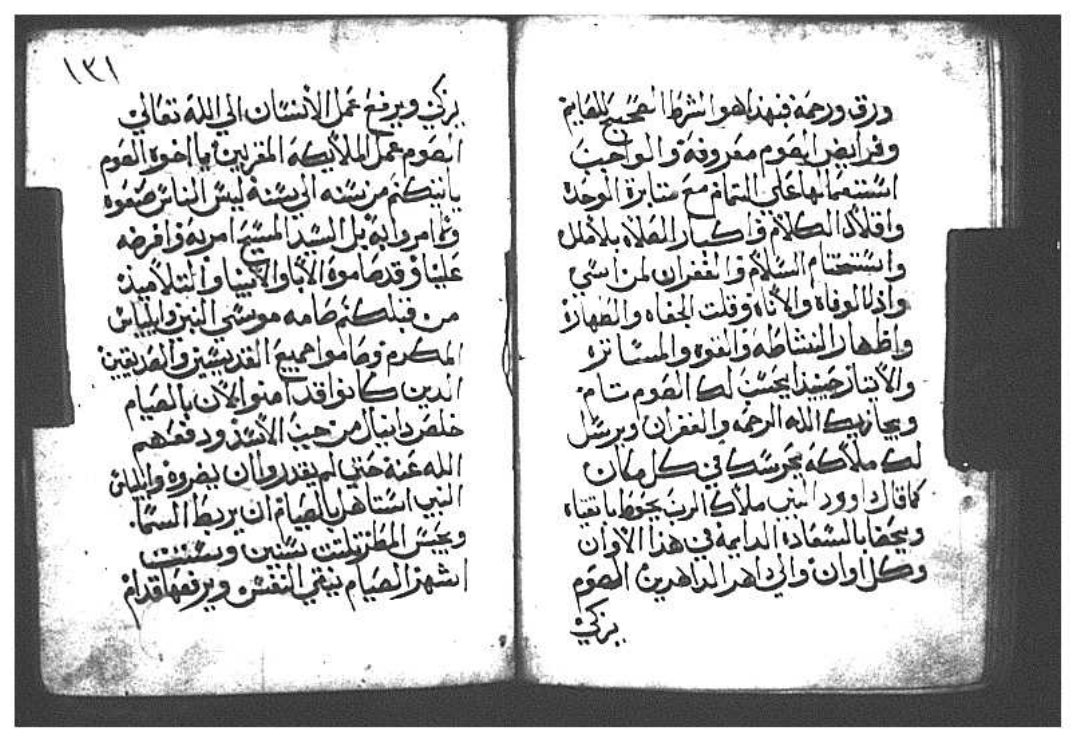 ورق ورحمة فبهذا هو الشرط الصحيح للصايم
وفرايض الصوم معروفة والواجب
استعمالها على التمام مع مثابرة الوحدة
واقلال الكلام واكثار الصلاة بلا ملل
واستختام السلام والغفران لمن اسي
واذا الوفاه والاناة وقلت الجفاه والطهارة
واظهار النشاطه والقوة والمساترة
والايثار حينيذا يحسب لك الصوم تام
ويجازيك الله الرحمه والغفران ويرسل
لك ملاكه يحرسك في كل مكان
كما قال داوود النبي ملاك الرب يحوط باتقياه
ويحضا بالسعادة الدايمة في هذا الاوان
وكل اوان والي داهر الداهرين الصوم
يزكي
١٣١
يزكي ويرفع عمل الانسان الي الله تعالي
الصوم عمل الملايكه المقربين يا اخوة الصوم
ياتيكم من سنه الي سنة ليس الناس صنعوه
ولا امروا به بل السيد المسيح امر به وافرضه
علينا وقد صاموه الابا والانبيا والتلاميذ
من قبلكم صامه موسي النبي وايلياس
المكرم وصاموا جميع القديسين والصديقين
الدين كانوا قد امنوا الان بالصيام
خلص دانيال من جب الاسد ودفعهم
الله عنة حتي لم يقدروا ان يضروه وايلياس
النبي استاهل بالصيام ان يربط السما
ويحبس المطر ثلث سنين وستت
اشهر الصيام ينقي النفس ويرفعها قدام